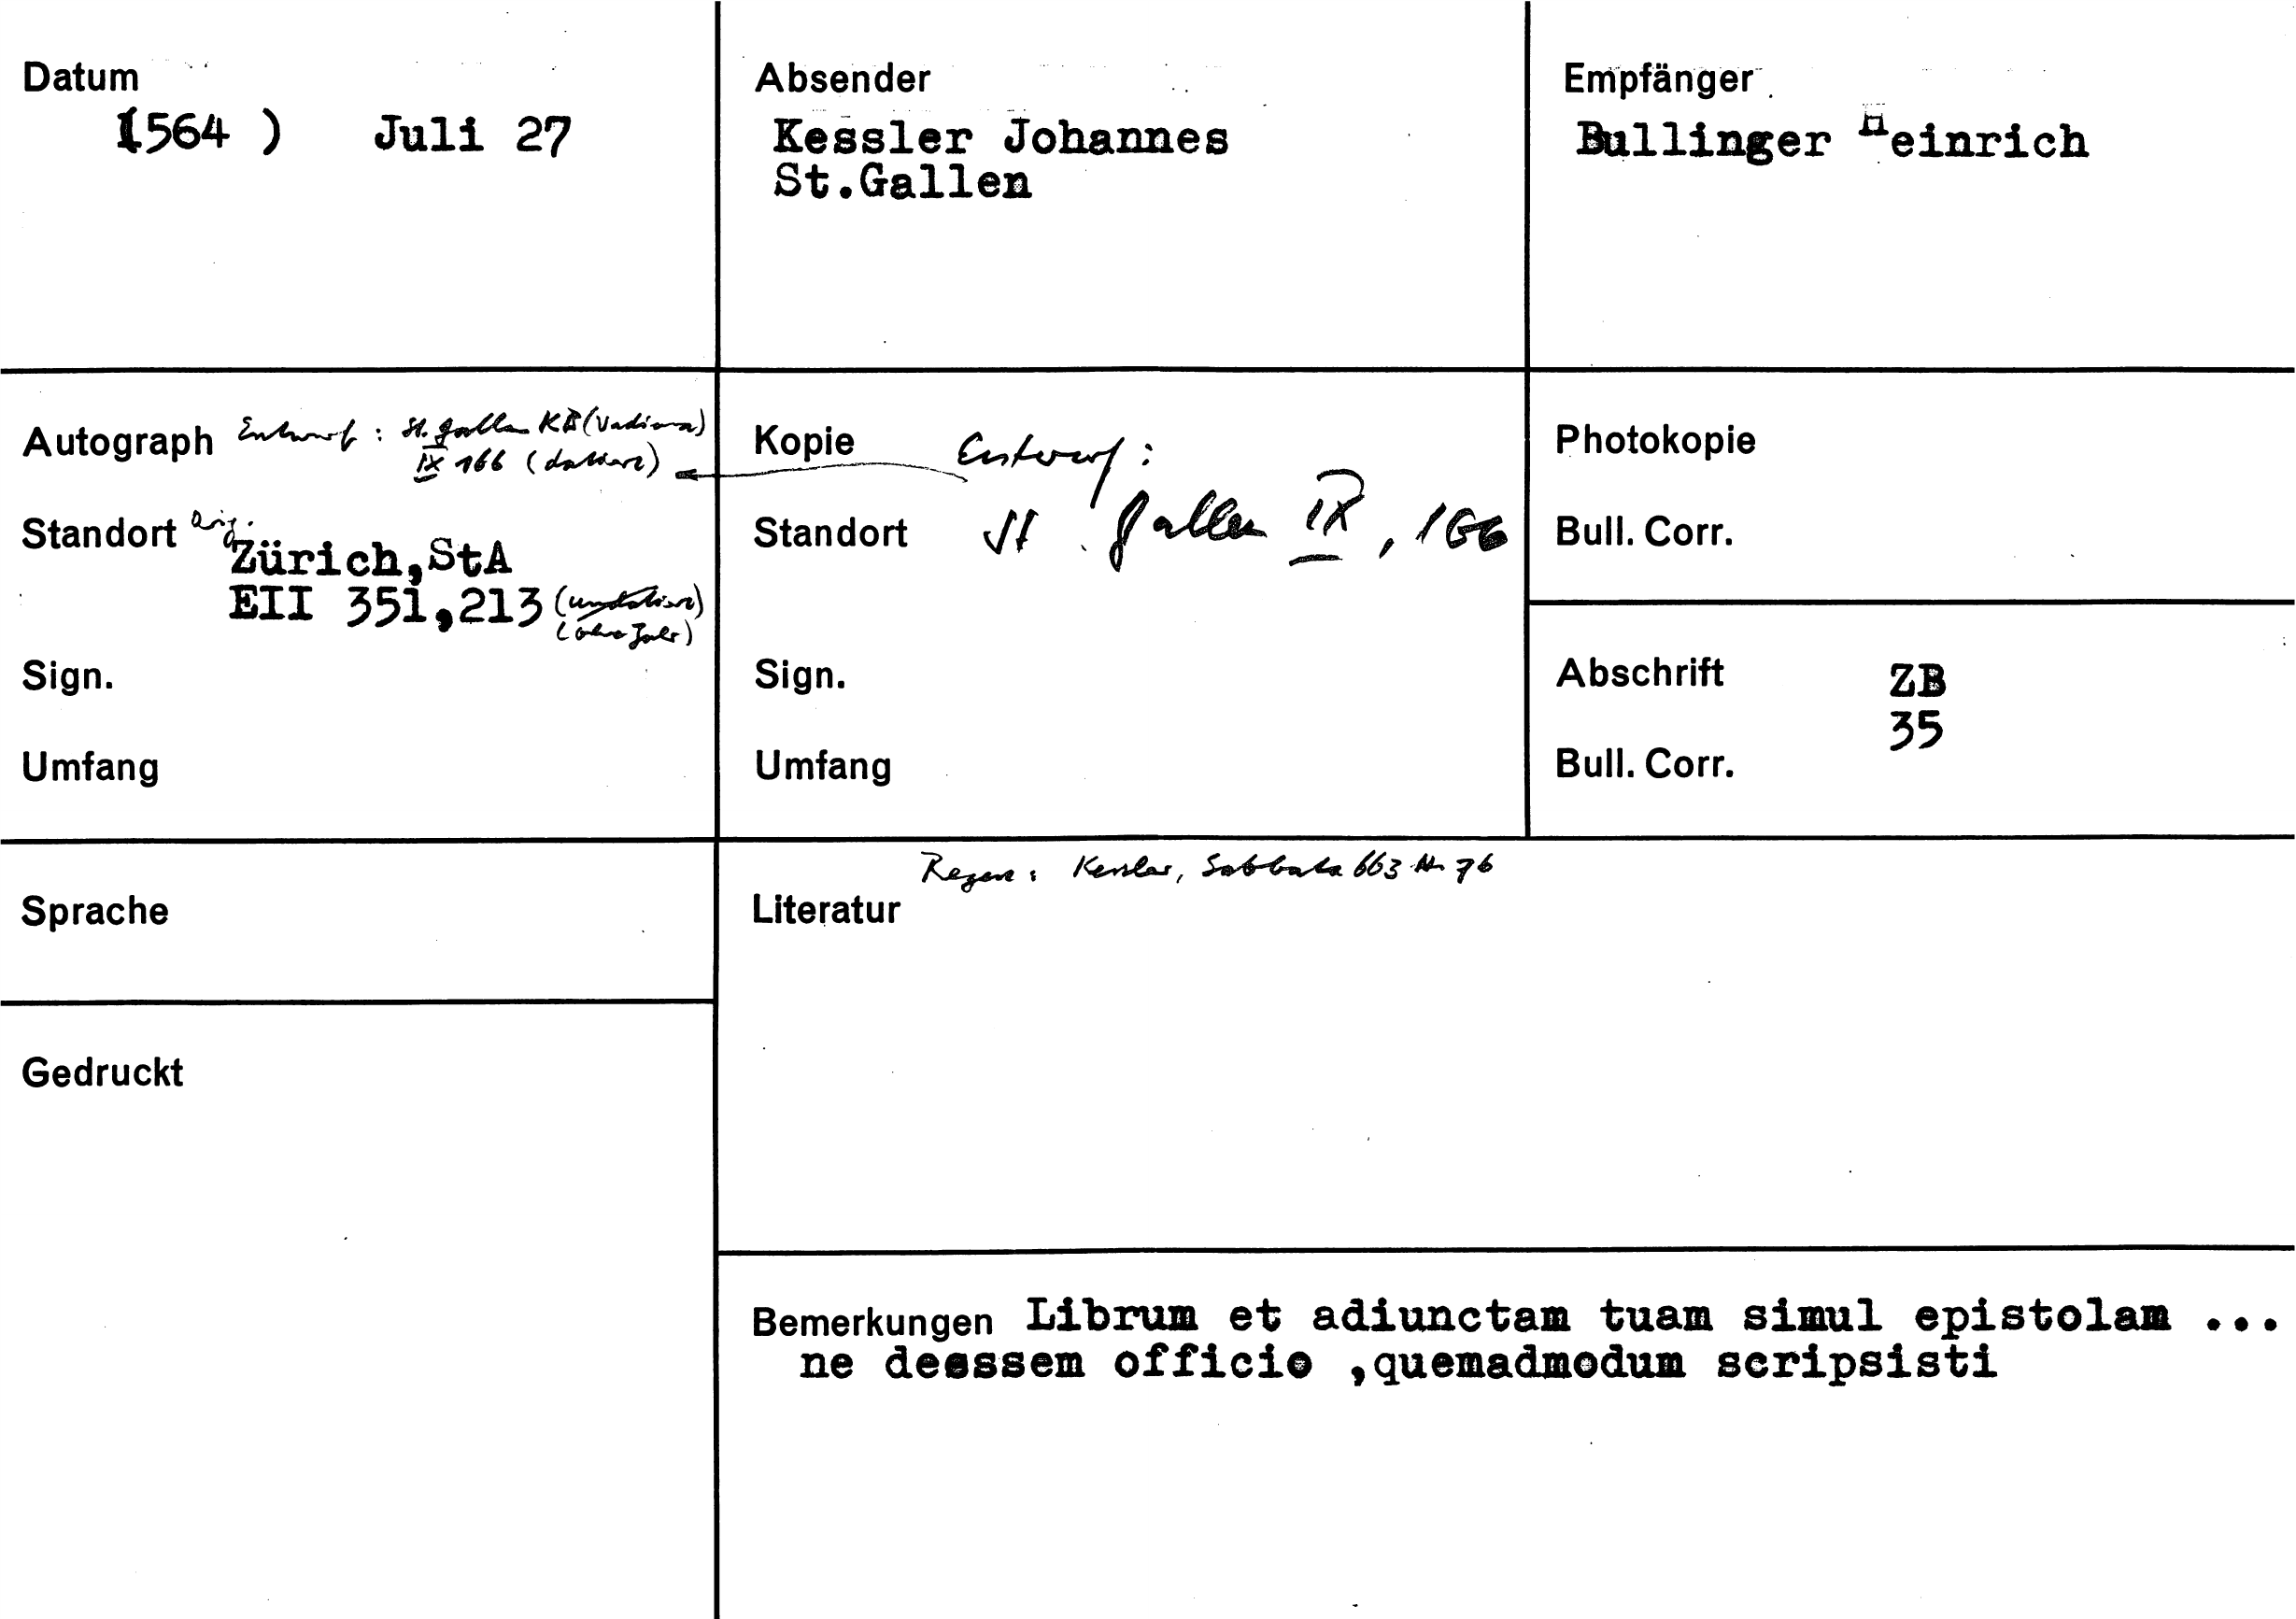 Datum
(1564 ) Juli 27
Absender
Kessler Johannes
St.Gallen
Empfänger
Bullinger Heinrich
Autograph Entwurf: St. Gallen KB (Vadiana)
IX 166 (datiert)
Standort Orig.
Zürich,StA
EII 351,213 (undatiert)
(ohne Jahr)
Sign.
Umfang
Kopie Entwurf:
Standort St. Gallen IX, 166
Sign.
Umfang
Photokopie
Bull. Corr.
Abschrift ZB
35
Bull. Corr.
Sprache
Gedruckt
Regest: Kessler, Sabbata 663 Nr. 76
Literatur
Bemerkungen Librum et adiunctam tuam simul epistolam ...
ne deessem officio ,quemadmodum scripsisti